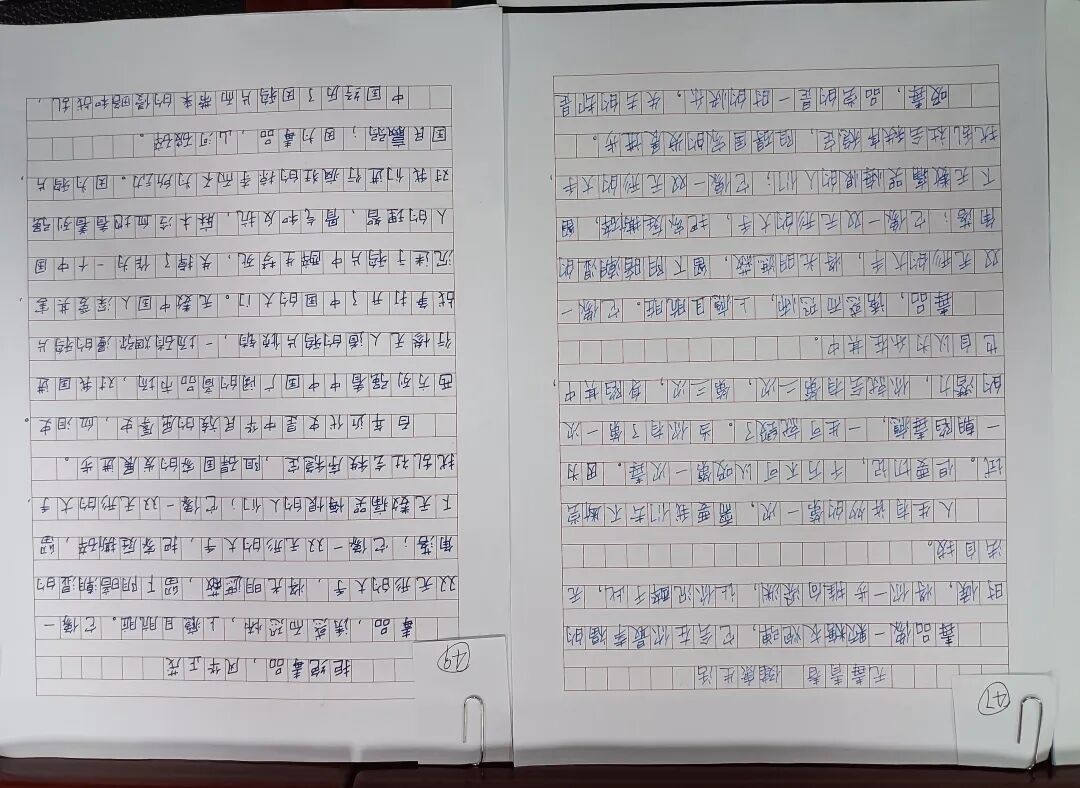 无毒青春 健康生活
毒品像一颗糖衣炮弹，它会在你最幸福的
时候，将你一步推向深渊，让你沉醉于此，无
法自拔。
人生有许妙的第一次，需要我们去不断尝
试。但要切记，千万不可以吸第一次毒。因为
一朝陷毒瘾，一生可就毁了。当你有了第一次
的潜力，你就会有第二次，第三次，身陷其中，
也自以为乐在其中。
毒品，诱惑而恐怖，上瘾且肮脏。它像一
双无形的大手，将光明遮蔽，留下阴暗潮湿的
角落；它像一双无形的大手，把家庭撕碎，留
下无数痛哭悔恨的人们；它像一双无形的大手，
扰乱社会秩序稳定，阻碍国家的发展进步。
吸毒，品尝的是一时的快乐，失去的却是
47
拒绝毒品，风华正茂
毒品，诱惑而恐怖，上瘾且肮脏。它像一
双无形的大手，将光明遮蔽，留下阴暗潮湿的
角落；它像一双无形的大手，把家庭撕碎，留
下无数痛哭悔恨的人们；它像一双无形的大手，
扰乱社会秩序稳定，阻碍国家的发展进步。
百年近代史是中华民族的屈辱史，血泪史。
西方列强看中中国广阔的商品市场，对我国进
行惨无人道的鸦片倾销，一场硝烟弥漫的鸦片
战争打开了中国的大门。无数中国人深受其害，
沉迷于鸦片中醉生梦死，失掉了作为一个中国
人的理智，骨气和反抗，麻木冷血地看着列强
对我们进行疯狂的掠夺而不为所动。因为鸦片，
国民羸弱；因为毒品，山河破碎。
中国经历了因鸦片而带来的侵略和战乱，
49